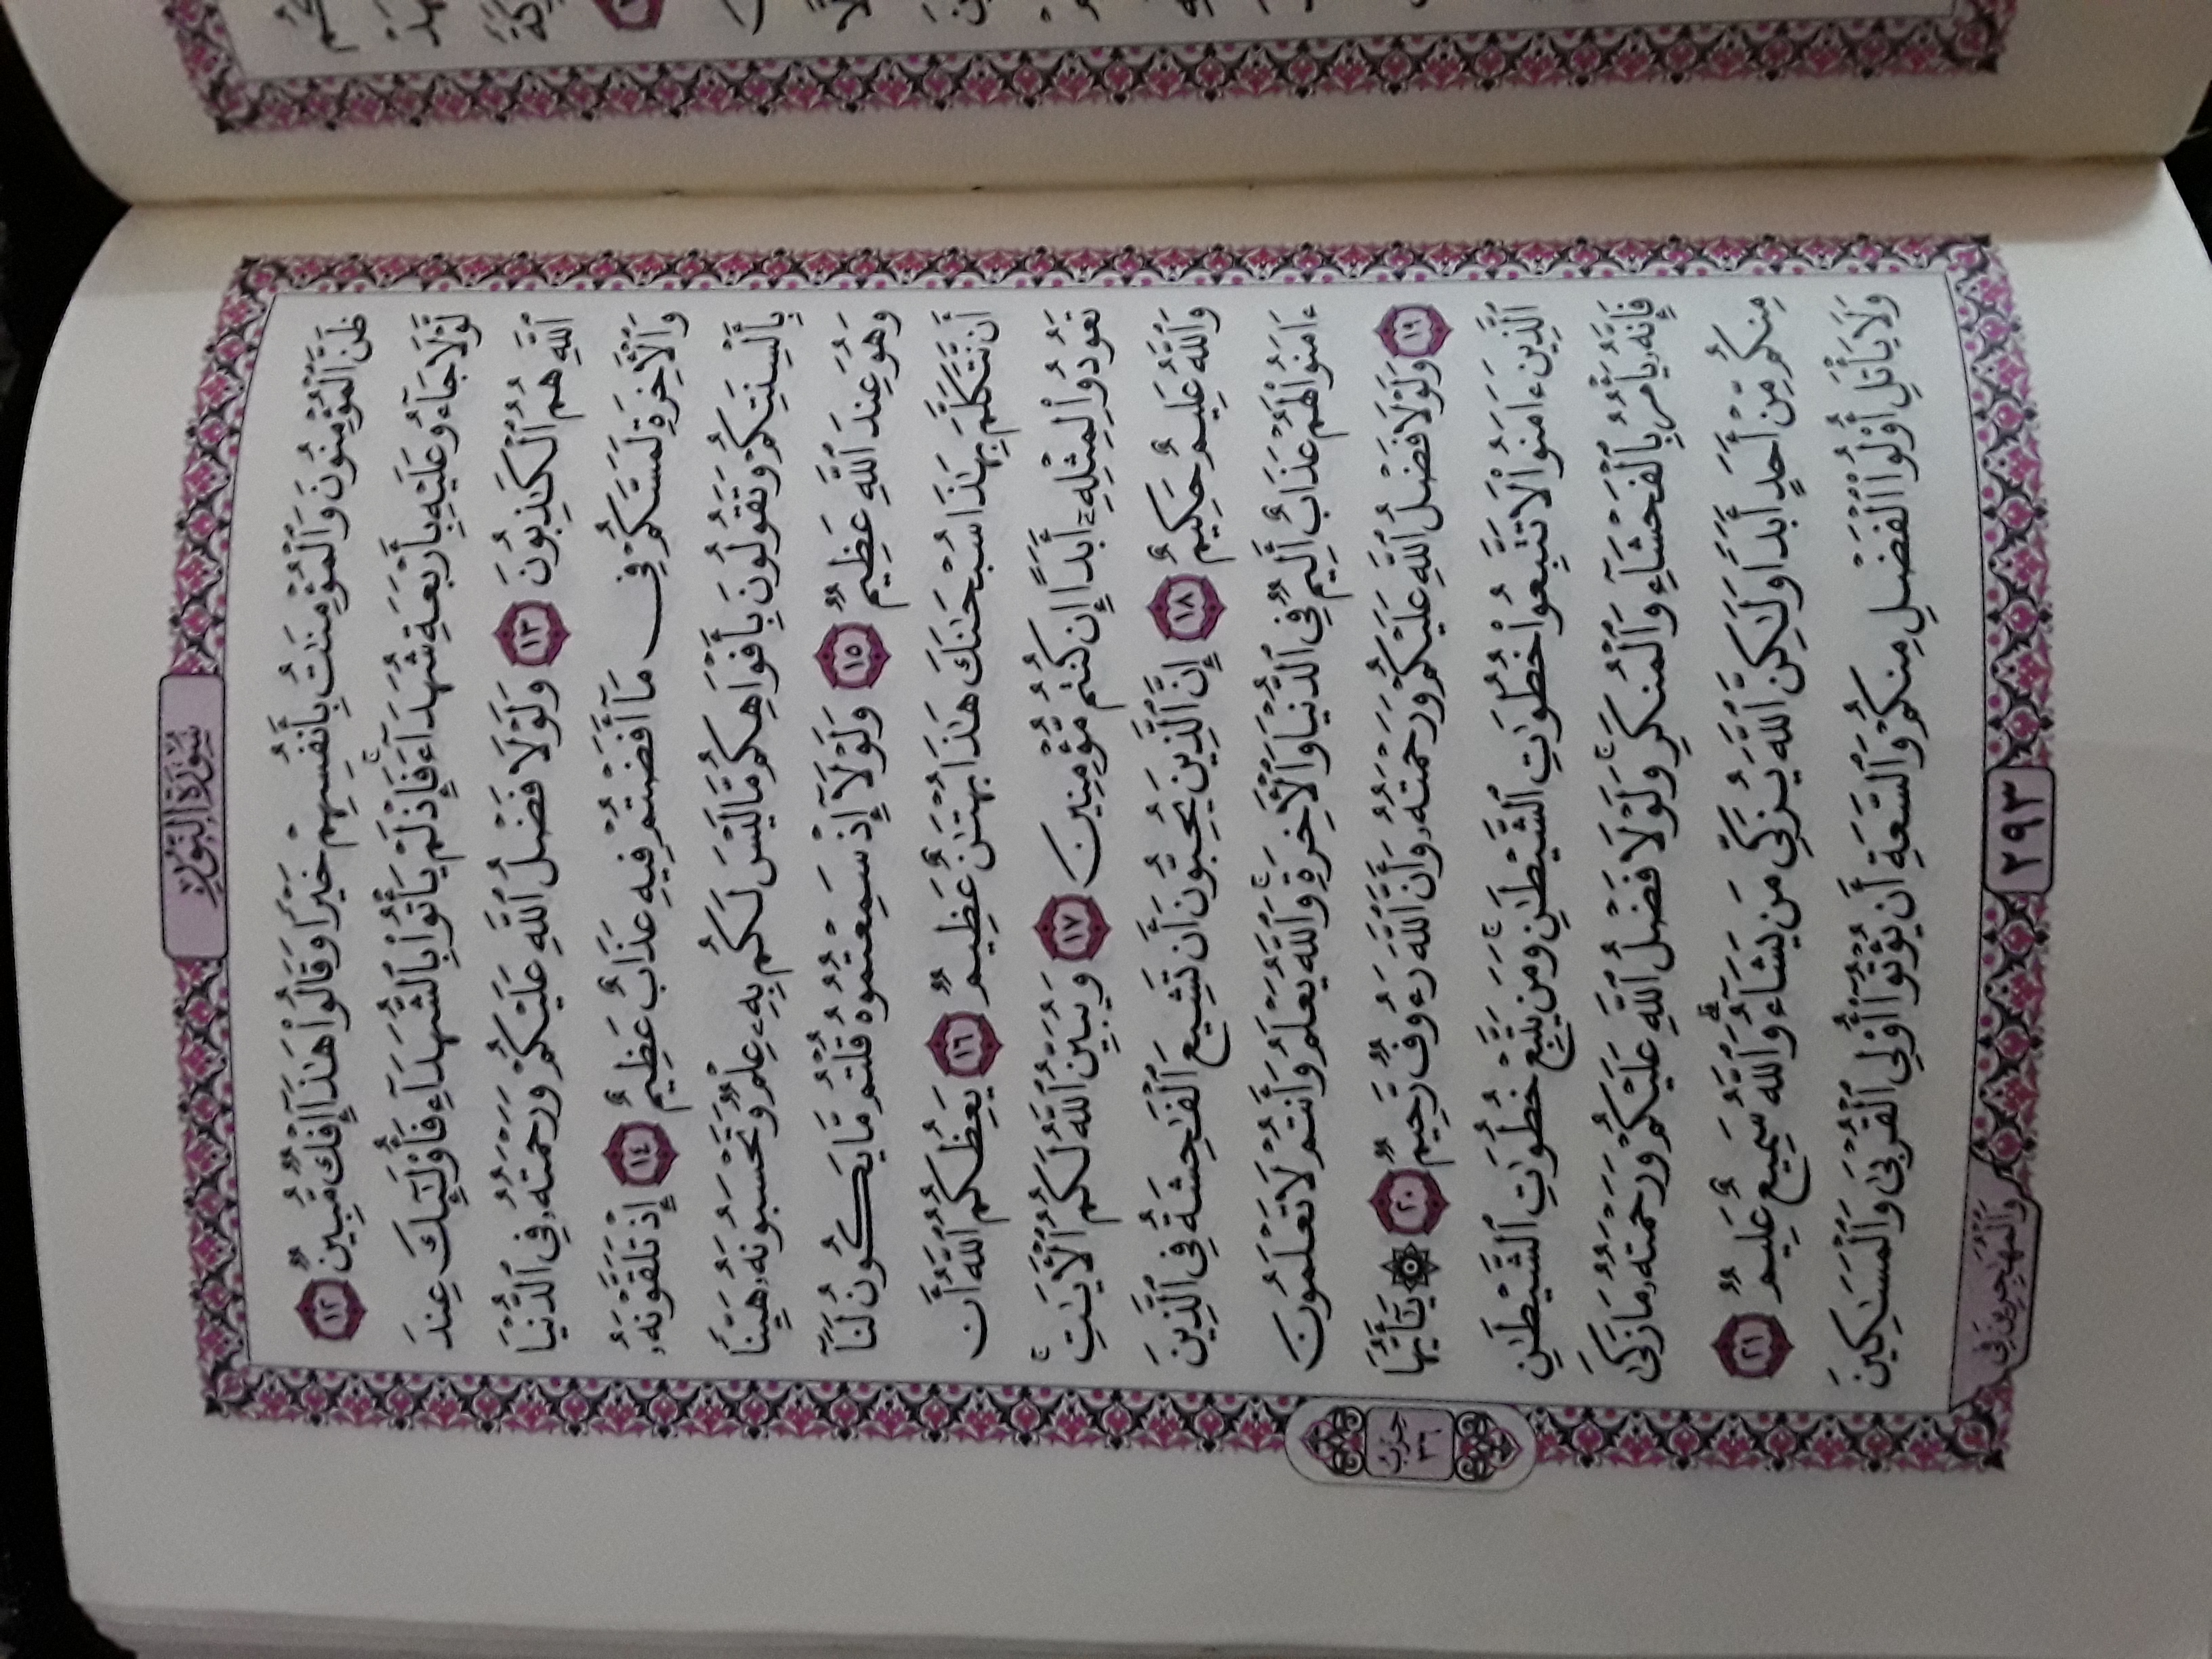 سُورَةُ النُّورِ
ظَنَّ ٱلْمُؤْمِنُونَ وَٱلْمُؤْمِنَٰتُ بِأَنفُسِهِمْ خَيْرًا وَقَالُوا۟ هَٰذَآ إِفْكٌ مُّبِينٌ ١٢
لَّوْلَا جَآءُو عَلَيْهِ بِأَرْبَعَةِ شُهَدَآءَ ۚ فَإِذْ لَمْ يَأْتُوا۟ بِٱلشُّهَدَآءِ فَأُو۟لَٰٓئِكَ عِندَ
ٱللَّهِ هُمُ ٱلْكَٰذِبُونَ ١٣ وَلَوْلَا فَضْلُ ٱللَّهِ عَلَيْكُمْ وَرَحْمَتُهُۥ فِى ٱلدُّنْيَا
وَٱلْأَخِرَةِ لَمَسَّكُمْ فِى مَآ أَفَضْتُمْ فِيهِ عَذَابٌ عَظِيمٌ ١٤ إِذْ تَلَقَّوْنَهُۥ
بِأَلْسِنَتِكُمْ وَتَقُولُونَ بِأَفْوَاهِكُم مَّا لَيْسَ لَكُم بِهِۦ عِلْمٌ وَتَحْسَبُونَهُۥ هَيِّنًا
وَهُوَ عِندَ ٱللَّهِ عَظِيمٌ ١٥ وَلَوْلَآ إِذْ سَمِعْتُمُوهُ قُلْتُم مَّا يَكُونُ لَنَآ
أَن نَّتَكَلَّمَ بِهَٰذَا سُبْحَٰنَكَ هَٰذَا بُهْتَٰنٌ عَظِيمٌ ١٦ يَعِظُكُمُ ٱللَّهُ أَن
تَعُودُوا۟ لِمِثْلِهِۦٓ أَبَدًا إِن كُنتُم مُّؤْمِنِينَ ١٧ وَيُبَيِّنُ ٱللَّهُ لَكُمُ ٱلْأَيَٰتِ ۚ
وَٱللَّهُ عَلِيمٌ حَكِيمٌ ١٨ إِنَّ ٱلَّذِينَ يُحِبُّونَ أَن تَشِيعَ ٱلْفَٰحِشَةُ فِى ٱلَّذِينَ
ءَامَنُوا۟ لَهُمْ عَذَابٌ أَلِيمٌ فِى ٱلدُّنْيَا وَٱلْأَخِرَةِ ۚ وَٱللَّهُ يَعْلَمُ وَأَنتُمْ لَا تَعْلَمُونَ
١٩ وَلَوْلَا فَضْلُ ٱللَّهِ عَلَيْكُمْ وَرَحْمَتُهُۥ وَأَنَّ ٱللَّهَ رَءُوفٌ رَّحِيمٌ ٢٠ ۞ يَٰٓأَيُّهَا
ٱلَّذِينَ ءَامَنُوا۟ لَا تَتَّبِعُوا۟ خُطُوَٰتِ ٱلشَّيْطَٰنِ ۚ وَمَن يَتَّبِعْ خُطُوَٰتِ ٱلشَّيْطَٰنِ
فَإِنَّهُۥ يَأْمُرُ بِٱلْفَحْشَآءِ وَٱلْمُنكَرِ ۚ وَلَوْلَا فَضْلُ ٱللَّهِ عَلَيْكُمْ وَرَحْمَتُهُۥ مَا زَكَىٰ
مِنكُم مِّنْ أَحَدٍ أَبَدًا وَلَٰكِنَّ ٱللَّهَ يُزَكِّى مَن يَشَآءُ ۗ وَٱللَّهُ سَمِيعٌ عَلِيمٌ ٢١
وَلَا يَأْتَلِ أُو۟لُوا۟ ٱلْفَضْلِ مِنكُمْ وَٱلسَّعَةِ أَن يُؤْتُوٓا۟ أُو۟لِى ٱلْقُرْبَىٰ وَٱلْمَسَٰكِينَ
حِزْبُ
٣٦
وَٱلْمُهَٰجِرِينَ فِى
٢٩٣